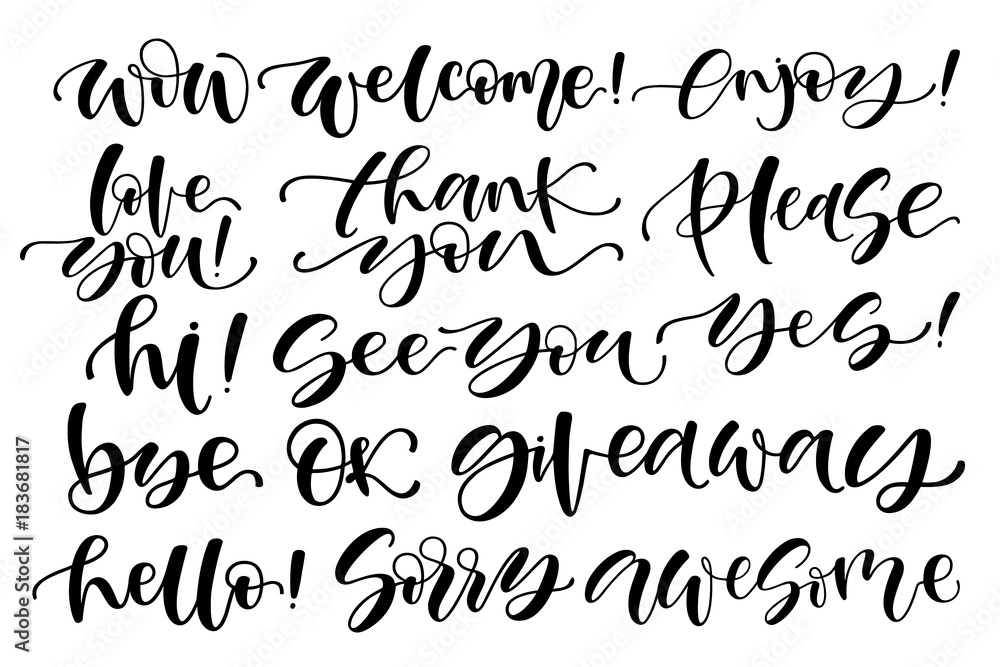 wow welcome! enjoy!
love you! thank you please
hi! see you yes!
bye OK giveaway
hello! sorry awesome
Adobe Stock | #183681817